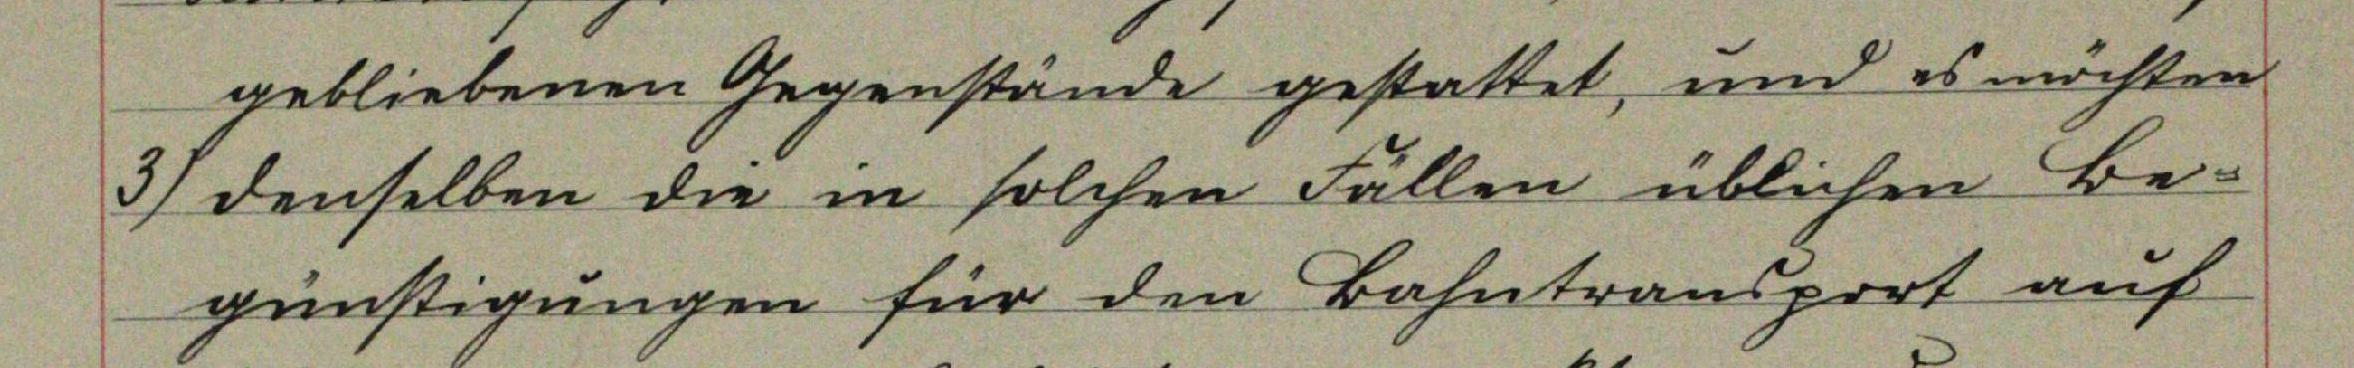 gebliebenen Gegenstände gestattet, und es möchten
3) denselben die in solchen Fällen üblichen Be=
günstigungen für den Bahntransport auf